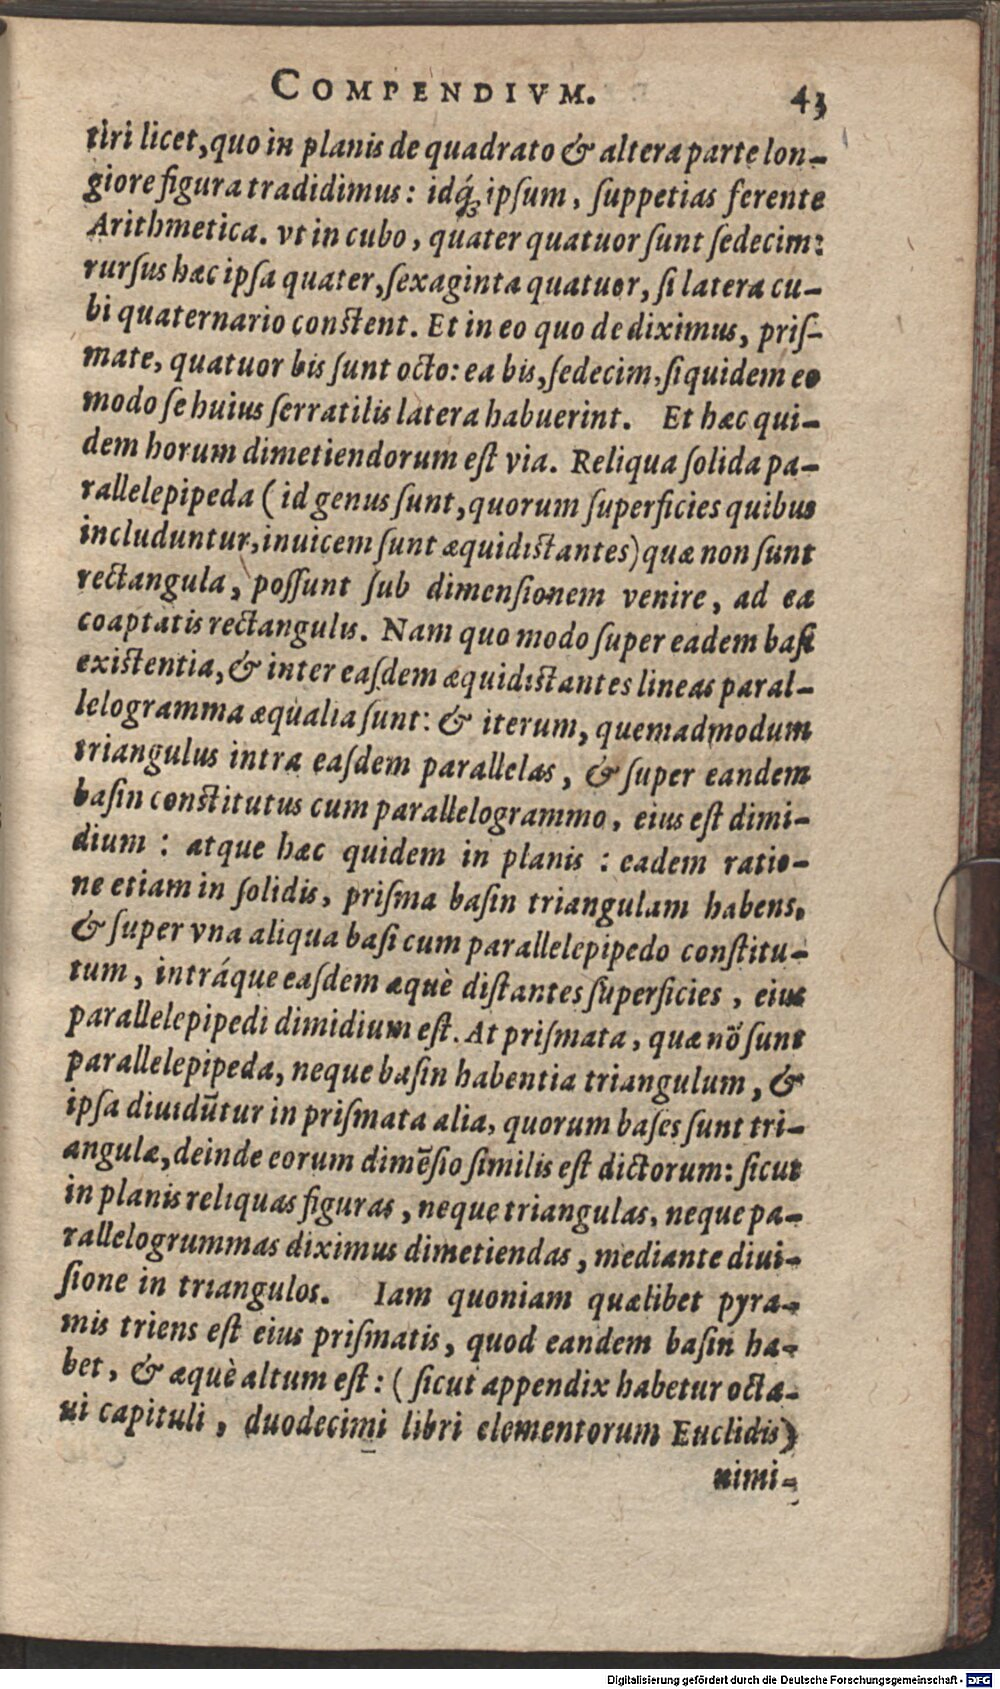 COMPENDIVM. 43
tiri licet, quo in planis de quadrato & altera parte lon-
giore figura tradidimus: idq́ꝫ ipſum, ſuppetias ferente
Arithmetica. vt in cubo, quater quatuor ſunt ſedecim:
rurſus hæc ipſa quater, ſexaginta quatuor, ſi latera cu-
bi quaternario conſtent. Et in eo quo de diximus, priſ-
mate, quatuor bis ſunt octo: ea bis, ſedecim, ſiquidem eo
modo ſe huius ſerratilis latera habuerint. Et hæc qui-
dem horum dimetiendorum eſt via. Reliqua ſolida pa-
rallelepipeda (id genus ſunt, quorum ſuperficies quibus
includuntur, inuicem ſunt æquidiſtantes) quæ non ſunt
rectangula, poſſunt ſub dimenſionem venire, ad ea
coaptatis rectangulis. Nam quo modo ſuper eadem baſi
exiſtentia, & inter eaſdem æquidiſtantes lineas paral-
lelogramma æqualia ſunt: & iterum, quemadmodum
triangulus intra eaſdem parallelas, & ſuper eandem
baſin conſtitutus cum parallelogrammo, eius eſt dimi-
dium: atque hæc quidem in planis: eadem ratio-
ne etiam in ſolidis, priſma baſin triangulam habens,
& ſuper vna aliqua baſi cum parallelepipedo conſtitu-
tum, intráque eaſdem æquè diſtantes ſuperficies, eius
parallelepipedi dimidium eſt. At priſmata, quæ nō ſunt
parallelepipeda, neque baſin habentia triangulum, &
ipſa diuidūtur in priſmata alia, quorum baſes ſunt tri-
angulæ, deinde eorum dimēſio ſimilis eſt dictorum: ſicut
in planis reliquas figuras, neque triangulas, neque pa-
rallelogrummas diximus dimetiendas, mediante diui-
ſione in triangulos. Iam quoniam quælibet pyra-
mis triens eſt eius priſmatis, quod eandem baſin ha-
bet, & æquè altum eſt: (ſicut appendix habetur octa-
ui capituli, duodecimi libri elementorum Euclidis)
nimi-
Digitalisierung gefördert durch die Deutsche Forschungsgemeinschaft - DFG